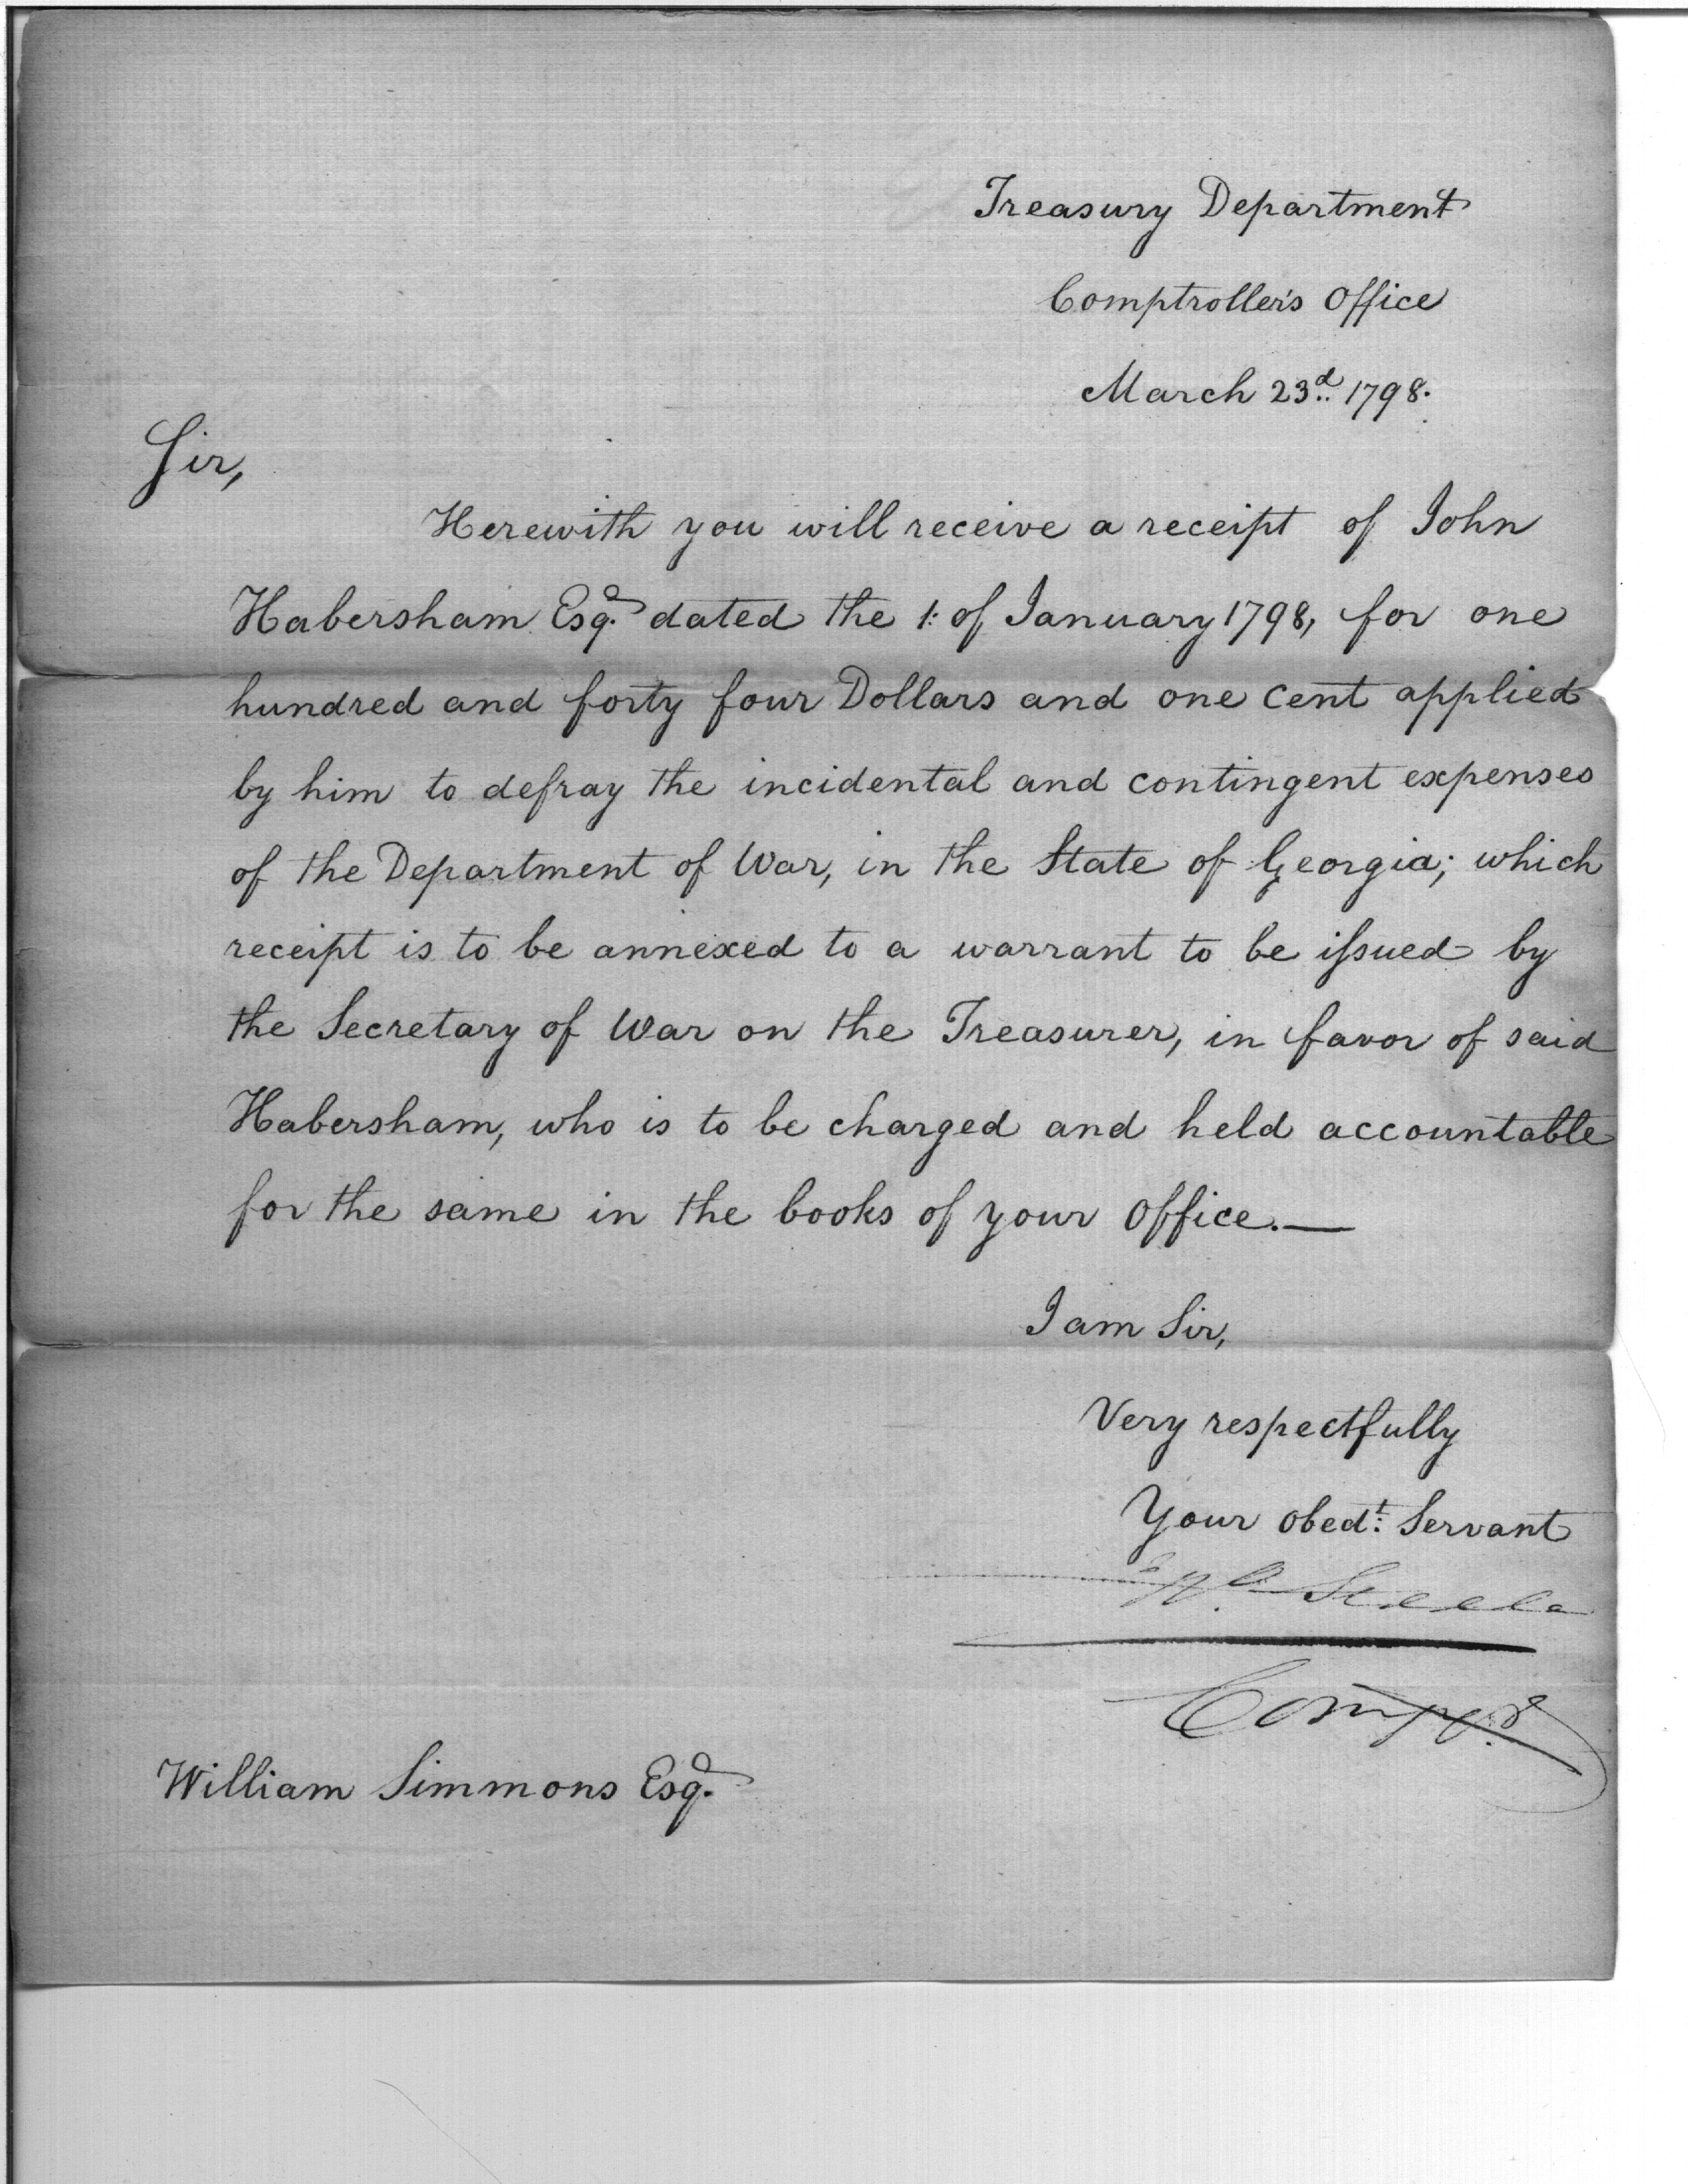 Treasury Department
Comptroller's Office
March 23d. 1798.
Sir,
Herewith you will receive a receipt of John
Habersham Esqr. dated the 1: of January 1798, for one
hundred and forty four Dollars and one Cent applied
by him to defray the incidental and contingent expenses
of the Department of War, in the State of Georgia; which
receipt is to be annexed to a warrant to be ifsued by
the Secretary of War on the Treasurer, in favor of said
Habersham, who is to be charged and held accountable
for the same in the books of your Office.—
I am Sir,
Very respectfully
Your Obedt: Servant
Jno. Steele
Compr.
William Simmons Esqr.